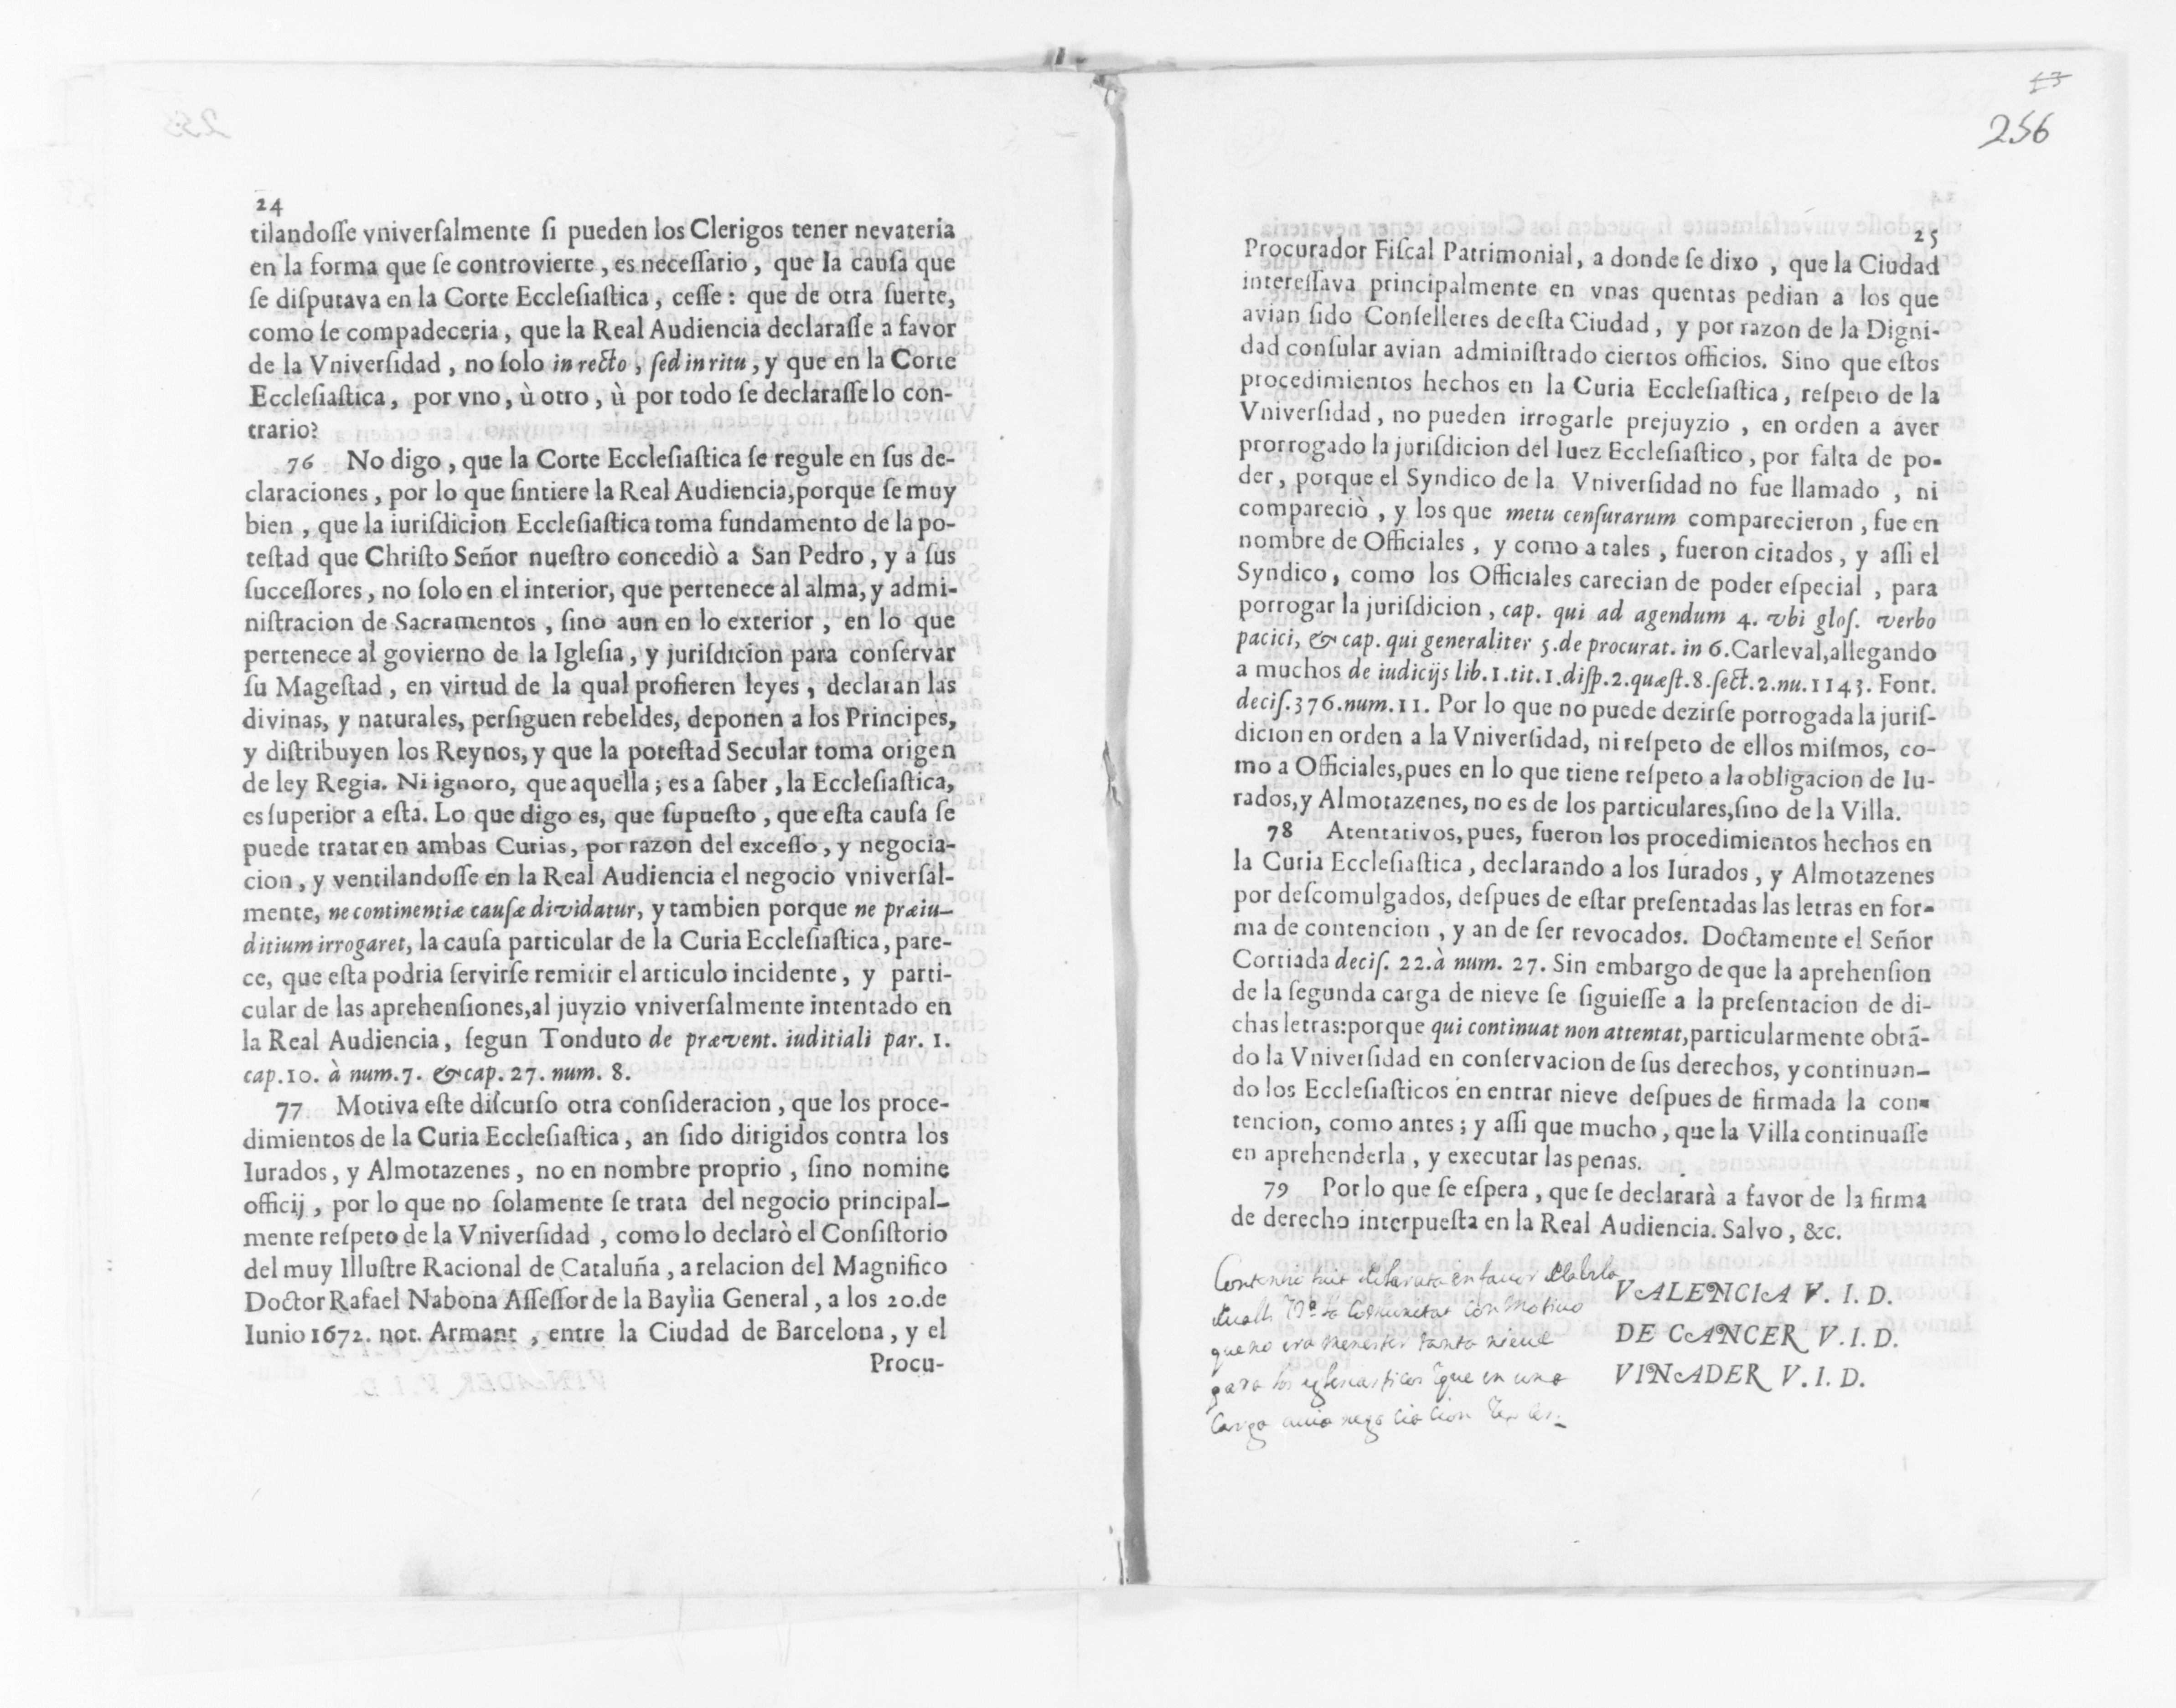 24
tilandoſſe vniverſalmente ſi pueden los Clerigos tener nevateria
en la forma que ſe controvierte, es neceſſario, que la cauſa que
ſe diſputava en la Corte Eccleſiaſtica, ceſſe: que de otra ſuerte,
como ſe compadeceria, que la Real Audiencia declaraſſe a favor
de la Vniverſidad, no ſolo in recto, ſed in ritu, y que en la Corte
Eccleſiaſtica, por vno, ù otro, ù por todo ſe declaraſſe lo con-
trario?
76 No digo, que la Corte Eccleſiaſtica ſe regule en ſus de-
claraciones, por lo que ſintiere la Real Audiencia, porque ſe muy
bien, que la iuriſdicion Eccleſiaſtica toma fundamento de la po-
teſtad que Chriſto Señor nueſtro concediò a San Pedro, y a ſus
ſucceſſores, no ſolo en el interior, que pertenece al alma, y admi-
niſtracion de Sacramentos, ſino aun en lo exterior, en lo que
pertenece al govierno de la Igleſia, y juriſdicion para conſervar
ſu Mageſtad, en virtud de la qual profieren leyes, declaran las
divinas, y naturales, perſiguen rebeldes, deponen a los Principes,
y diſtribuyen los Reynos, y que la poteſtad Secular toma origen
de ley Regia. Ni ignoro, que aquella; es a ſaber, la Eccleſiaſtica,
es ſuperior a eſta. Lo que digo es, que ſupueſto, que eſta cauſa ſe
puede tratar en ambas Curias, por razon del exceſſo, y negocia-
cion, y ventilandoſſe en la Real Audiencia el negocio vniverſal-
mente, ne continentiæ cauſæ dividatur, y tambien porque ne præiu-
ditium irrogaret, la cauſa particular de la Curia Eccleſiaſtica, pare-
ce, que eſta podria ſervirſe remitir el articulo incidente, y parti-
cular de las aprehenſiones, al juyzio vniverſalmente intentado en
la Real Audiencia, ſegun Tonduto de prævent. iuditiali par. 1.
cap. 10. à num. 7. & cap. 27. num. 8.
77 Motiva eſte diſcurſo otra conſideracion, que los proce-
dimientos de la Curia Eccleſiaſtica, an ſido dirigidos contra los
Iurados, y Almotazenes, no en nombre proprio, ſino nomine
officij, por lo que no ſolamente ſe trata del negocio principal-
mente reſpeto de la Vniverſidad, como lo declarò el Conſiſtorio
del muy Illuſtre Racional de Cataluña, a relacion del Magnifico
Doctor Rafael Nabona Aſſeſſor de la Baylia General, a los 20. de
Iunio 1672. not. Armant, entre la Ciudad de Barcelona, y el
Procu-
256
25
Procurador Fiſcal Patrimonial, a donde ſe dixo, que la Ciudad
intereſſava principalmente en vnas quentas pedian a los que
avian ſido Conſelleres de eſta Ciudad, y por razon de la Digni-
dad conſular avian adminiſtrado ciertos officios. Sino que eſtos
procedimientos hechos en la Curia Eccleſiaſtica, reſpeto de la
Vniverſidad, no pueden irrogarle prejuyzio, en orden a aver
prorrogado la juriſdicion del Iuez Eccleſiaſtico, por falta de po-
der, porque el Syndico de la Vniverſidad no fue llamado, ni
compareciò, y los que metu cenſurarum comparecieron, fue en
nombre de Officiales, y como a tales, fueron citados, y aſſi el
Syndico, como los Officiales carecian de poder eſpecial, para
porrogar la juriſdicion, cap. qui ad agendum 4. vbi gloſ. verbo
pacici, & cap. qui generaliter 5. de procurat. in 6. Carleval, allegando
a muchos de iudicijs lib. 1. tit. 1. diſp. 2. quæſt. 8. ſect. 2. nu. 1143. Font.
deciſ. 376. num. 11. Por lo que no puede dezirſe porrogada la juriſ-
dicion en orden a la Vniverſidad, ni reſpeto de ellos miſmos, co-
mo a Officiales, pues en lo que tiene reſpeto a la obligacion de Iu-
rados, y Almotazenes, no es de los particulares, ſino de la Villa.
78 Atentativos, pues, fueron los procedimientos hechos en
la Curia Eccleſiaſtica, declarando a los Iurados, y Almotazenes
por deſcomulgados, deſpues de eſtar preſentadas las letras en for-
ma de contencion, y an de ſer revocados. Doctamente el Señor
Cortiada deciſ. 22. à num. 27. Sin embargo de que la aprehenſion
de la ſegunda carga de nieve ſe ſiguieſſe a la preſentacion de di-
chas letras: porque qui continuat non attentat, particularmente obrã-
do la Vniverſidad en conſervacion de ſus derechos, y continuan-
do los Eccleſiaſticos en entrar nieve deſpues de firmada la con-
tencion, como antes; y aſſi que mucho, que la Villa continuaſſe
en aprehenderla, y executar las penas.
79 Por lo que ſe eſpera, que ſe declararà a favor de la firma
de derecho interpueſta en la Real Audiencia. Salvo, &c.
VALENCIA V. I. D.
DE CANCER V. I. D.
VINADER V. I. D.
en favor
la Comunitat con Motivo
que no era menester tanta nieve
para los eglesiasticos que en una
carga avia negociacion